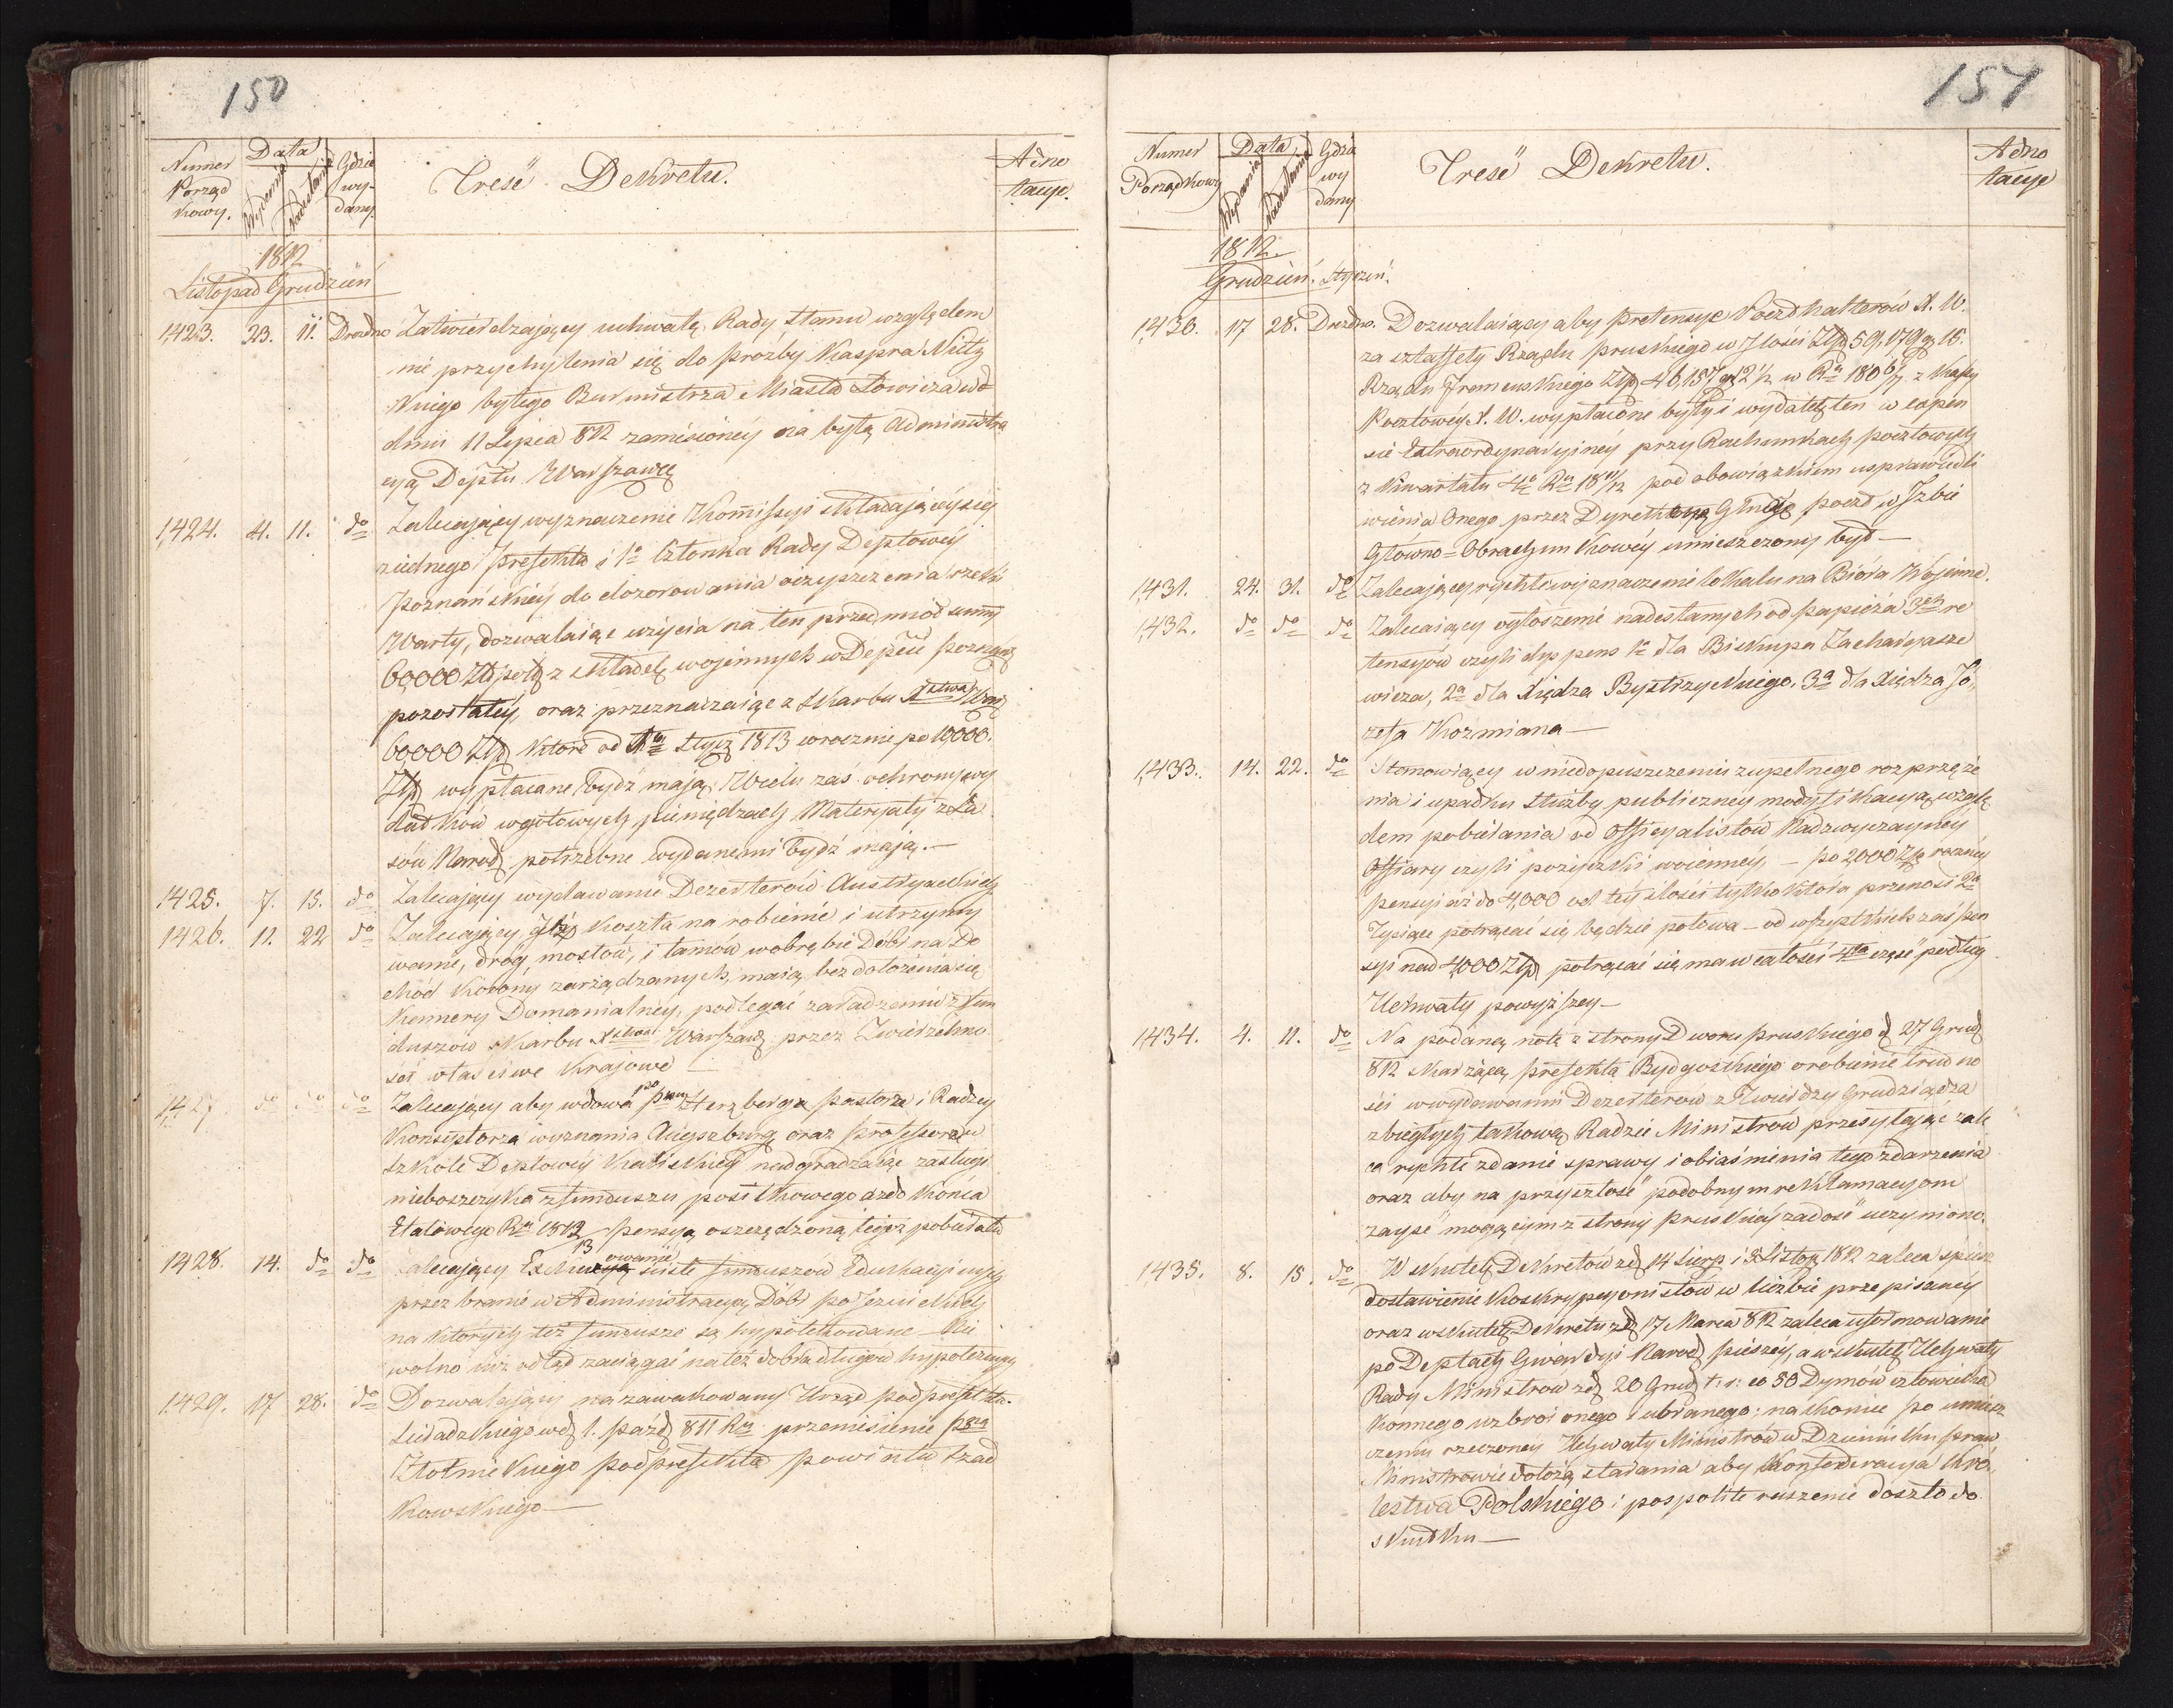 150
Numer Porząd kowy.
Data
Wydania
Nadesłania
Gdzie wy- dany
Treść Dekretu.
Adno tacye.
1812
Listopad Grudzień
1,423. 23. 11. Drezno Zatwierdzający uchwałę Rady Stanu względem
nie przychylenia się do prozby Kaspra
skiego byłego Burmistrza Miasta Łowicza w d
dniu 11 Lipca 812 zaniesioney na byłą Administra
cyą Deptu Warszaws
1,424. 4. 11. do Zalecający wyznaczenie Kommissyi składającey się
z iednego Prefekta i 1o Członka Rady Deptowey
Poznańskiey do dozorowania oczyszczenia rzeki
Warty, dozwalaiąc użycia na ten przedmiot summy
60,000 Złp z składek wojennych w Depcie Poznans
pozostałey, oraz przeznaczaiąc z Skarbu Xstwa Wars
60,000 Złp które od 1go Stycz 1813 w rocznie po 10,000.
Złp wypłacane bydź mają. W celu zaś ochrony wy
datków w gotowych pieniędzach Materyały z La
sów Narod potrzebne wydanemi bydź mają.—
1425. 7. 15. do Zalecający wydawanie Dezerterów Austryackich
1426. 11. 22 do Zalecający iż koszta na robienie i utrzymy
wanie, dróg, mostów, i tamów w obrębie Dóbr na Do
chód Korony zarządzanych, maią bez dołożenia się
Kamery Domanialney, podlegać zaradzeniu z fun
duszow Skarbu Xstwa Warszaws przez Zwierzchno
ści właściwe Krajowe—
1427 do do do Zalecający aby wdowa po Herzberga Pastorze i Radzcy
Konsystorza wyznania Augszburg oraz Professorze w
Szkole Deptowey Kaliskiey nadgradzaiąc zasługi
nieboszczyka z funduszu posiłkowego aż do końca
Etatowego Ru 1812/13 pensyą oszczędzoną tegoż pobierała
1428. 14. do do Zalecający ścisłe funduszów Edukacyinych
przez branie w Administracyą Dóbr poJezuickich
na których też fundusze są hypotekowane — Nie
wolno iuż odtąd zaciągać na też dobra długów hypotecznych
1429. 17 28. do Dozwalający na zawakowany Urząd podprefekta
Sieradzkiego w d. 1. paźd 811 Ru przeniesienie Pana
Złotnickiego podprefekta powiatu Szad
kowskiego—
151
Numer Porządkowy
Data
Wydania
Nadesłania
Gdzie wy dany
Treść Dekretu.
Adno tacye
1812.
Grudzień. Styczeń.
1,430. 17 28. Drezdno. Dozwalaiący aby pretensye Poczthalterów X. W.
za sztaffety Rządu pruskiego w Ilości Złp 59,179 gr 16.
Rządu Francuskiego Złp 46,157 gr 12 1/2 w Ru 1806/7 z Kassy
Pocztowey X. W. wypłacone były i wydatek ten w expen
sie Extraordynaryiney przy Rachunkach pocztowych
z Kwartału 4go Ru 1811/12 pod obowiązkiem usprawiedli
wienia Onego przez Dyrekcyą Glną poczt w Izbie
Główno=Obrachunkowey umieszczony był—
1,431. 24. 31. do Zalecający rychłe wyznaczenie lokalu na Bióra Wojenne.
1,432. do do do Zalecaiący ogłoszenie nadesłanych od papieża 3ech re
tensyów czyli dyspens 1o dla Biskupa Zacharyasze
wicza, 2a dla Xiędza Bystrzyckiego. 3a dla Xiędza Jó,
zefa Kozmiana—
1,433. 14. 22. do Stanowiący w niedopuszczeniu zupełnego rozprzęże
nia i upadku służby publiczney modyfikacyą, wzglę
dem pobierania od Officyalistów Nadzwyczayney
Offiary czyli pożyczki woienney,— po 2,000 Złp roczney
pensyi aż do 4,000 od tey ilości tylko która przenosi 2a
Tysiące potrącać się będzie połowa—od wszystkich zaś pen
syi nad 4,000 Złp potrącać się ma w całości 4ta część podług
Uchwały powyższey—
1,434. 4. 11. do Na podaną notę z strony Dworu pruskiego d 27 Grud
812 skarżącą prefekta Bydgoskiego o robienie trudno
ści w wydawaniu Dezerterów z Twierdzy Grudziądza
zbiegłych takową Radzie Ministrów przesyłając zale
ca rychłe zdanie sprawy i obiaśnienia tego zdarzenia
oraz aby na przyszłość podobnym reklamacyom
zayść mogącym z strony pruskiey zadość uczyniono.
1435. 8. 15. do W skutek Dekretów z d 14 Sierp i 3 Listop 1812 zaleca spiesz
dostawienie Konskrypcyonistów w liczbie przepisaney
oraz w skutek Dekretu z d 17 Marca 812 zaleca uformowanie
po Deptach Gwardyi Narod pieszey, a w skutek Uchwały
Rady Ministrow z d 20 Grud t. r: co 50 Dymów człowieka
Konnego uzbroionego i ubranego; nakoniec po umiesz
czeniu rzeczoney Uchwały Ministrów w Dzienniku Praw
Ministrowie dołożą starania aby Konfederacya Kró,
lestwa Polskiego i pospolite ruszenie doszło do
skutku—